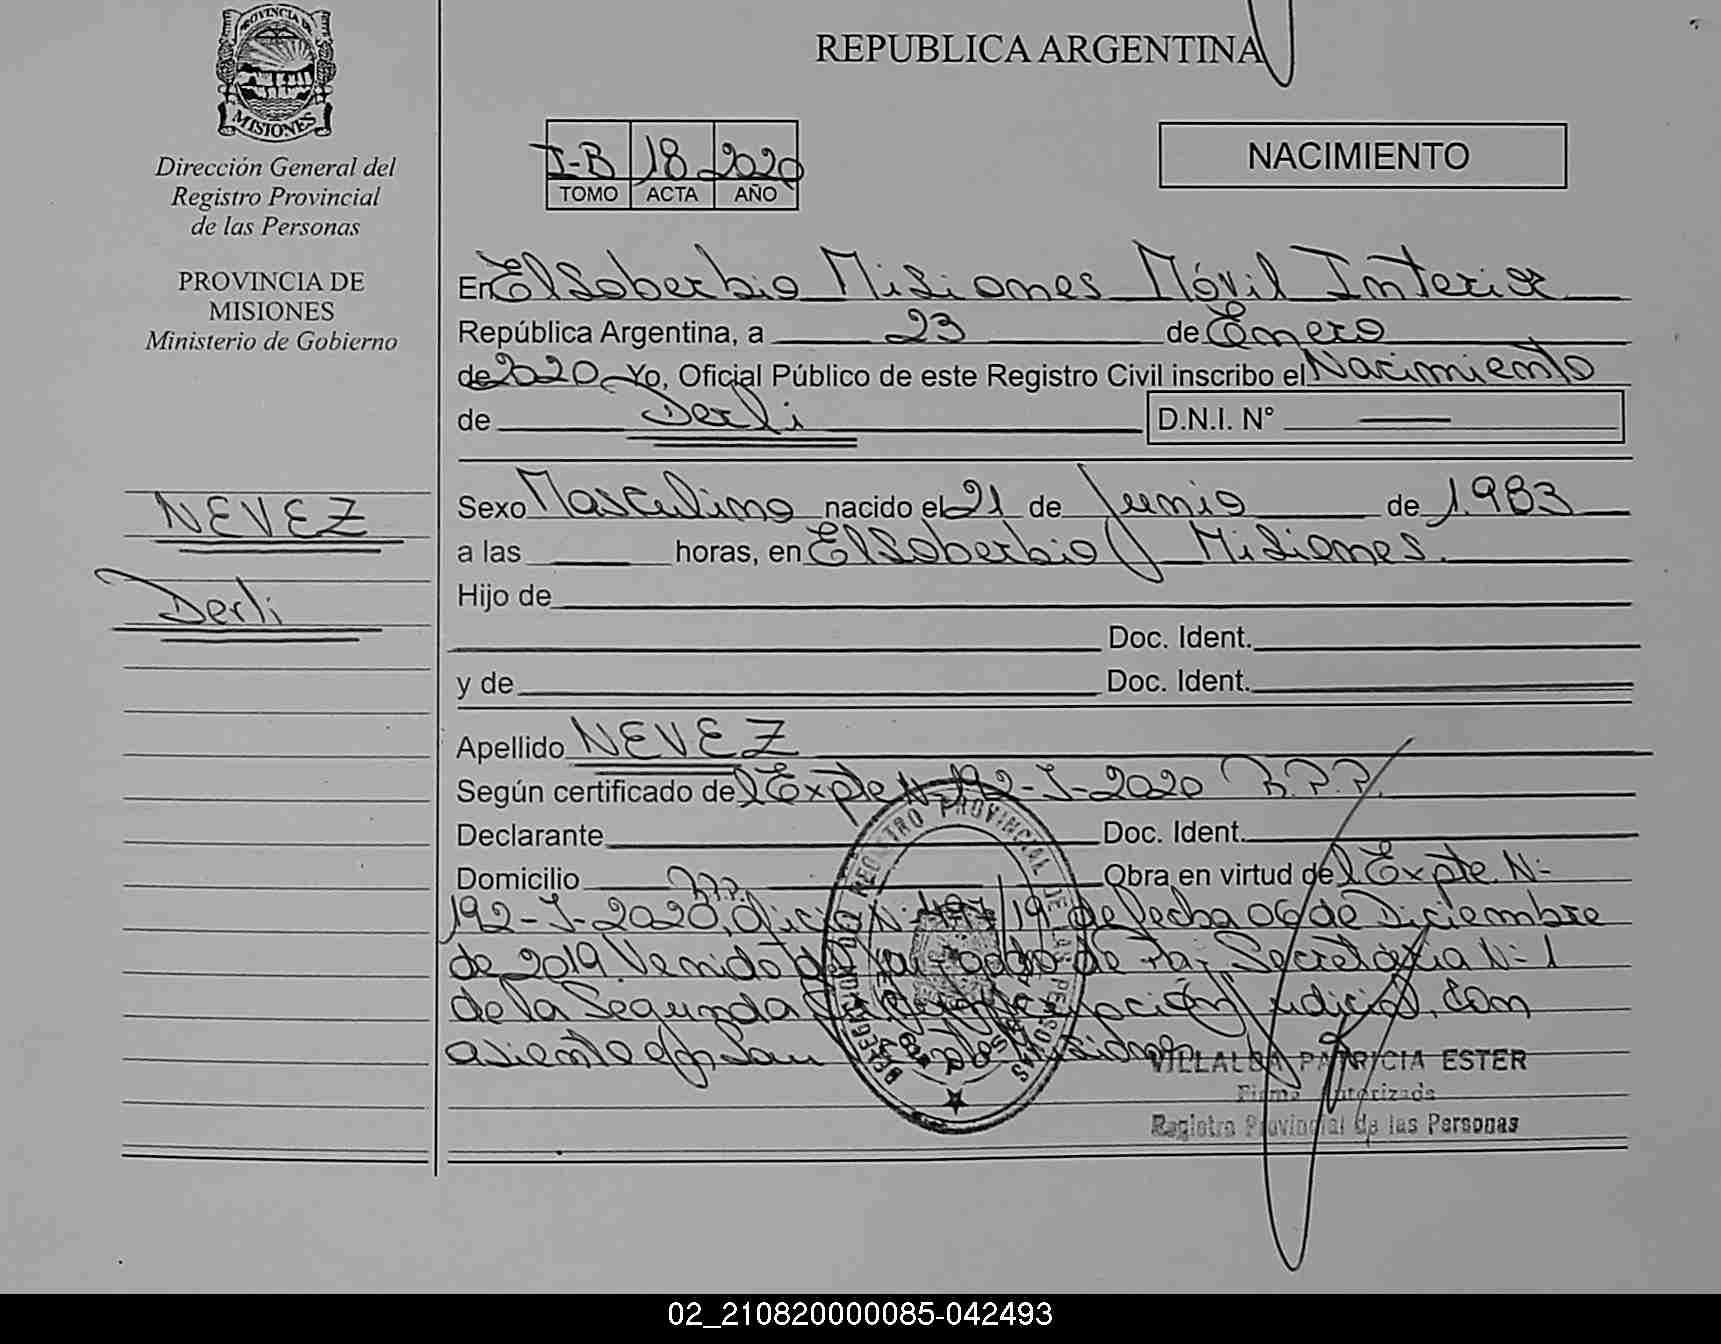 PROVINCIA DE
MISIONES
Dirección General del
Registro Provincial
de las Personas
PROVINCIA DE
MISIONES
Ministerio de Gobierno
NEVEZ
Derli
REPUBLICA ARGENTINA
I-B 18 2020
TOMO ACTA AÑO
NACIMIENTO
En El Soberbio Misiones Móvil Interior
República Argentina, a 23 de Enero
de 2020 Yo, Oficial Público de este Registro Civil inscribo el Nacimiento
de Derli D.N.I. N°
Sexo Masculino nacido el 21 de Junio de 1.983
a las horas, en El Soberbio Misiones.
Hijo de
Doc. Ident.
y de Doc. Ident.
Apellido NEVEZ
Según certificado del Expte N-192-I-2020 R.P.P.
Declarante Doc. Ident.
Domicilio R.P.P. Obra en virtud del Expte. N-
192-I-2020, Oficio N- /19 de fecha 06 de Diciembre
de 2019 Venido del Juzgado de Paz Secretaria N-1
de la Segunda Circunscripción Judicial, con
asiento en
REGISTRO PROVINCIAL DE LAS PERSONAS
VILLALBA PATRICIA ESTER
Firma Autorizada
Registro Provincial de las Personas
02_210820000085-042493